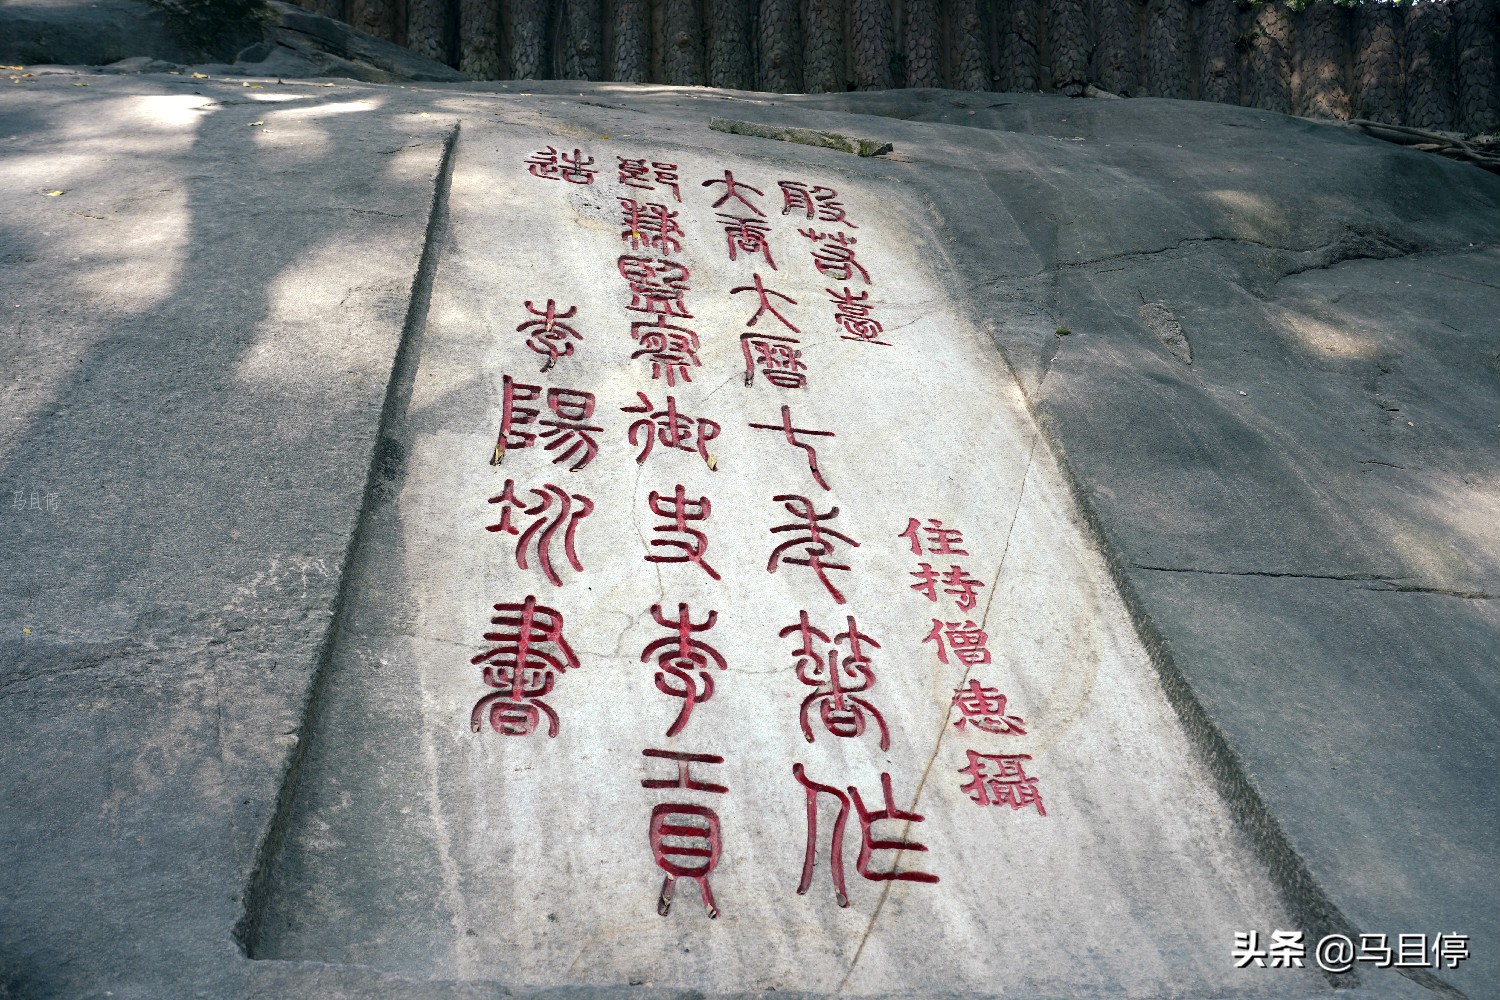 般若臺
住持僧惠攝
大唐大曆七年著作
郎兼監察御史李貢
造
李陽冰書
马且停
头条 @马且停